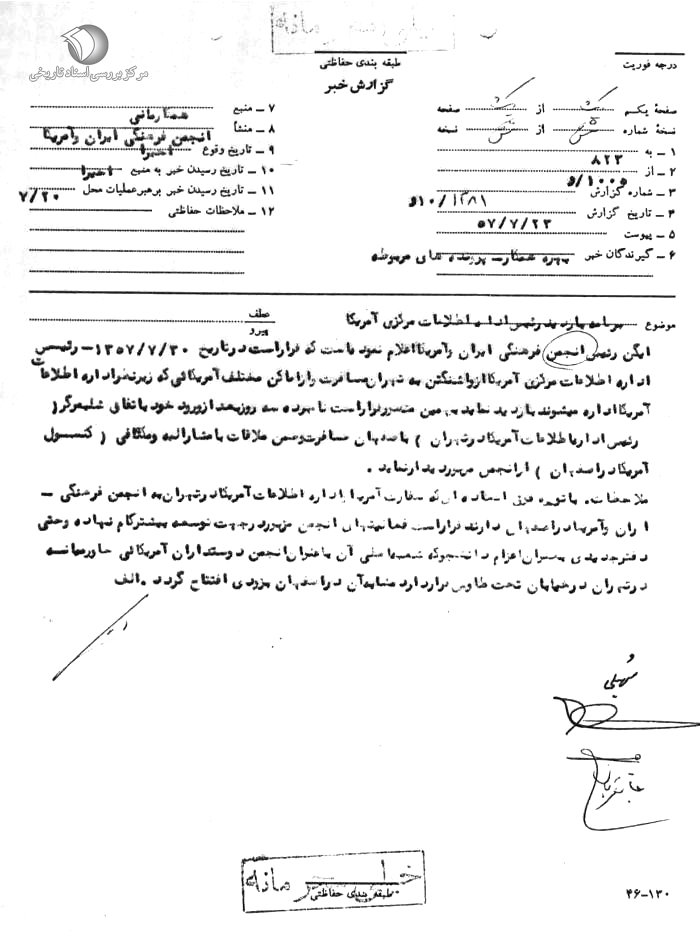 خیلی محرمانه
مرکز بررسی اسناد تاریخی
طبقه بندی حفاظتی
درجه فوریت
گزارش خبر
صفحهٔ یکم از صفحه
نسخهٔ شماره از نسخه
۱ – به
۲ – از ۸۲۳
۳ – شمارهٔ گزارش
۴ – تاریخ گزارش ۵۷/۷/۲۳
۵ – پیوست
۶ – گیرندگان خبر بهره همکار- پرونده های مربوطه
۷ – منبع
۸ – منشأ انجمن فرهنگی ایران وآمریکا
۹ – تاریخ وقوع اخیرا
۱۰ – تاریخ رسیدن خبر به منبع اخیرا
۱۱ – تاریخ رسیدن خبر برهبرعملیات محل ۷/۲۰
۱۲ – ملاحظات حفاظتی
موضوع برنامه بازدید رئیس اداره اطلاعات مرکزی آمریکا
عطف
پیرو
ایگن رئیس انجمن فرهنگی ایران وآمریکا اعلام نموده است که قراراست در تاریخ ۱۳۵۷/۷/۳۰- رئیس
اداره اطلاعات مرکزی آمریکا از واشنگتن به تهران مسافرت و از اماکن مختلف آمریکائی که زیرنظر اداره اطلاعات
آمریکا اداره میشوند بازدید نماید بهمین منظور قراراست نامبرده سه روز بعد از ورود خود باتفاق
رئیس اداره اطلاعات آمریکا در تهران ) باصفهان مسافرت و ضمن ملاقات با مشارالیه و متکافی ( کنسول
آمریکا در اصفهان ) از انجمن مزبور دیدار نماید .
ملاحظات . باتوجه که سفارت آمریکا و اداره اطلاعات آمریکا در تهران به انجمن فرهنگی –
ایران وآمریکا در اصفهان دارند قراراست فعالیتهای انجمن مزبور در جهت توسعه بیشتر گام نهاده و حتی
دفتر جدیدی اعزام دانشجو که شعبه اصلی آن با عنوان انجمن دوستداران آمریکائی خاورمیانه
در تهران در خیابان تخت طاوس قرار دارد مشابه آن در اصفهان بزودی افتتاح گردد . الف
طبقه بندی حفاظتی
خیلی محرمانه
۴۶-۱۳۰